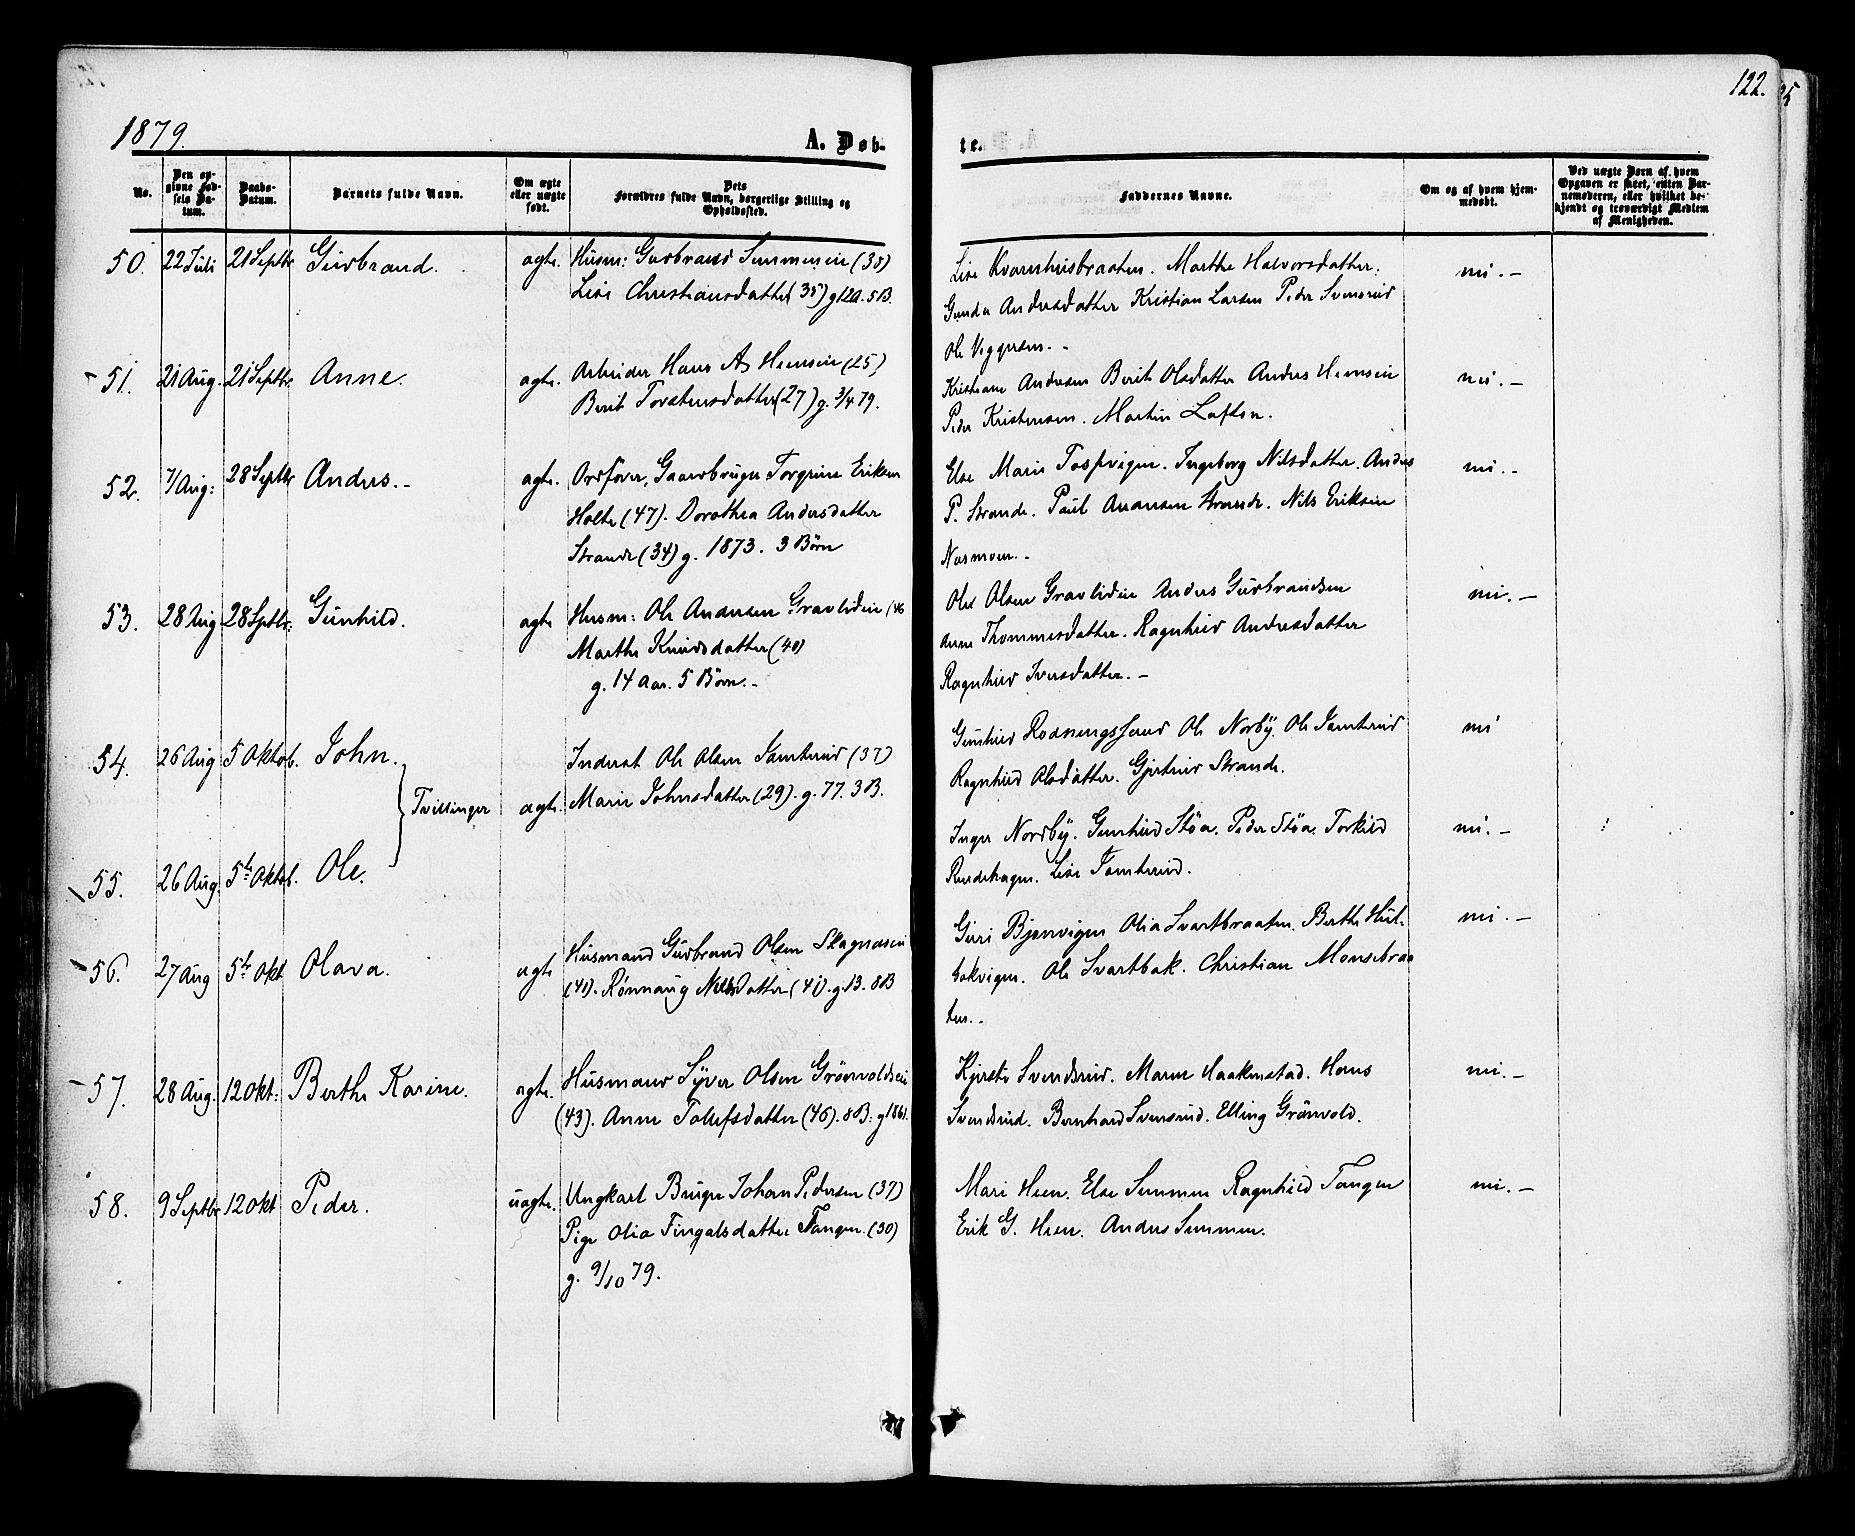 122.
1879.
A. Døb-
te.
No.
Den op-
givne Fød-
sels Da-
tum.
Daabs-
Datum.
Barnets fulde Navn.
Om ægte
eller uægte
født.
Dets
Forældres fulde Navn, borgerlige Stilling og
Opholdssted.
Faddernes Navne.
Om og af hvem hjem-
medøbt.
Ved uægte Børn af hvem
Opgaven er skeet, enten Bar-
nemoderen, eller hvilket be-
kjendt og troværdigt Medlem
af Menigheden.
50. 22 Juli 21 Septbr Gudbrand. ægte. Husm: Gudbrand Simmensen (38)
Lise Christiansdatter (35) g 12 a. 5 B.
Lise Kvarnhusbraaten. Marthe Halvorsdatter.
Gunda Andersdatter Kristian Larsen Peder Svensrud
Ole Viggersen. -
ni. -
51. 21 Aug. 21 Septbr. Anne. ægte. Arbeider Hans A Hemsen (25)
Berit Torstensdatter (27) g. 3/4 79.
Kristiane Andersen Berit Olsdatter Anders Hemsen
Peder Kristensen. Martin Laften.
ni. -
52. 7/Aug: 28 Septbr Anders. - ægte. Ordfører, Gaardbruger Torgrim Eriksen
Holte (47). Dorothea Andersdatter
Strande (34) g. 1873. 3 Børn
Else Marie Tospvigen. Ingeborg Nilsdatter. Anders
P. Strande. Paul Anansen Strande. Nils Eriksen
Næsmoen. -
ni. -
53. 28 Aug 28 Septbr: Gunhild. ægte Husm: Ole Andersen Gravlidien (46
Marthe Knudsdatter (40)
g. 14 Aar. 5 Børn. -
Ole Olsen Gravlidien Anders Gudbrandsen
Anne Thommesdatter. Ragnhild Andersdatter
Ragnhild Iversdatter. -
ni. -
54. 26 Aug 5 Oktob. John. Inderst Ole Olsen Tamterud (37)
Tvillinger ægte. Marie Johnsdatter (29). g. 77. 3 B.
Gunhild Rodningssand Ole Norby. Ole Tamterud
Ragnhild Olsdatter. Gjertrud Strande.
ni
55. 26 Aug. 5te Oktob. Ole.
Inger Nordby. Gunhild Støa. Peder Støa. Torkild
Rudshagen. Lise Tamterud.
ni. -
56. 27 Aug 5te Okt Olava. ægte Husmand Gudbrand Olsen Skagnæseie
(41). Rønnaug Nilsdatter (41). g. 13. 8 B
Guri Bjønvigen Olia Svartbraaten. Berthe Hul-
bakvigen. Ole Svartbak. Christian Monsebraa
ten. -
ni. -
57. 28 Aug. 12 Okt: Berthe Karine. ægte. Husmand Syver Olsen Grönvoldseie
(43). Anne Tollefsdatter (46). 8 B. g 1861.
Kjersti Svendsrud. Maren Haakenstad. Hans
Svendsrud. Bernhard Svensrud. Elling Grönvold.
ni. -
58. 9 Septbr 12 Okt Peder. uægte. Ungkarl Bruger Johan Pedersen (37)
Pige Olia Fingalsdatter Tangen. (30)
g. 9/10 79.
Mari Heen. Else Simmen Ragnhild Tangen
Erik G. Heen. Anders Simmen.
ni. -